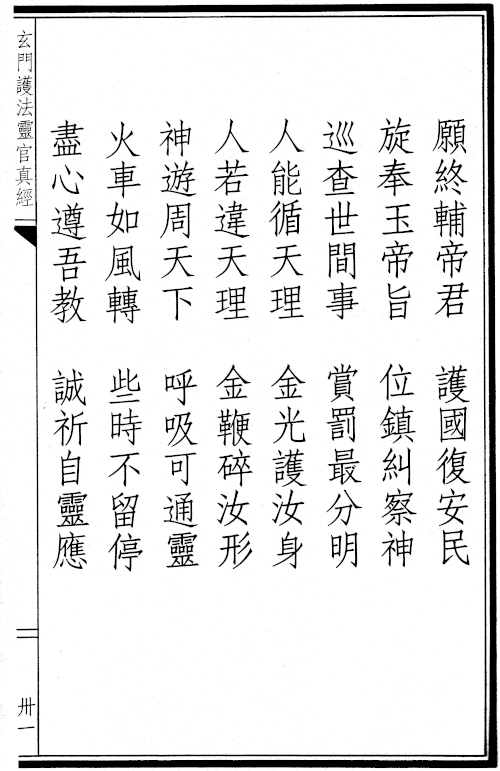 願終輔帝君　護國復安民
旋奉玉帝旨　位鎮糾察神
巡查世間事　賞罰最分明
人能循天理　金光護汝身
人若違天理　金鞭碎汝形
神遊周天下　呼吸可通靈
火車如風轉　些時不留停
盡心遵吾教　誠祈自靈應
玄門護法靈官真經
卅一